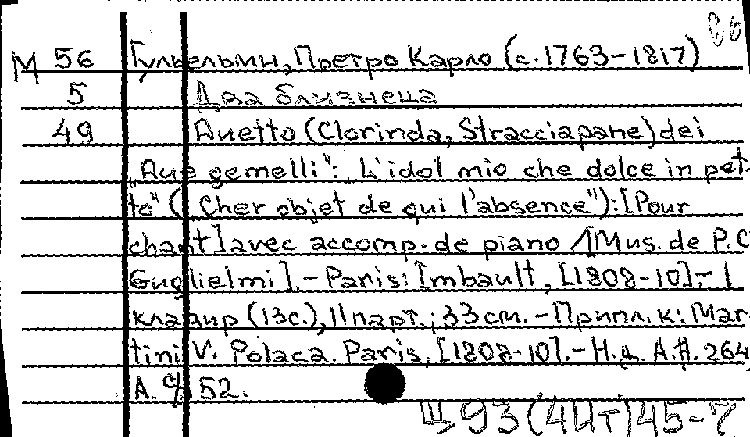 М 56 Гульельми, Пьетро Карло (c. 1763-1817)
5 Два близнеца
49 Duetto (Clorinda, Stracciapane) dei
„Due gemelli": L'idol mio che dolce in pet-
to" („Cher objet de qui l'absence"): [Pour
chant] avec accomp. de piano / [Mus. de P.C.
Guglielmi]. - Paris: Imbault, [1808-10]. - 1
клавир (13с.), 11 парт.; 33 см. - Припл. к: Mar-
tini V. Polaca. Paris, [1808-10]. - Н.д. А.Н. 264,
А. 52.
Щ 93(4Ит)45-7